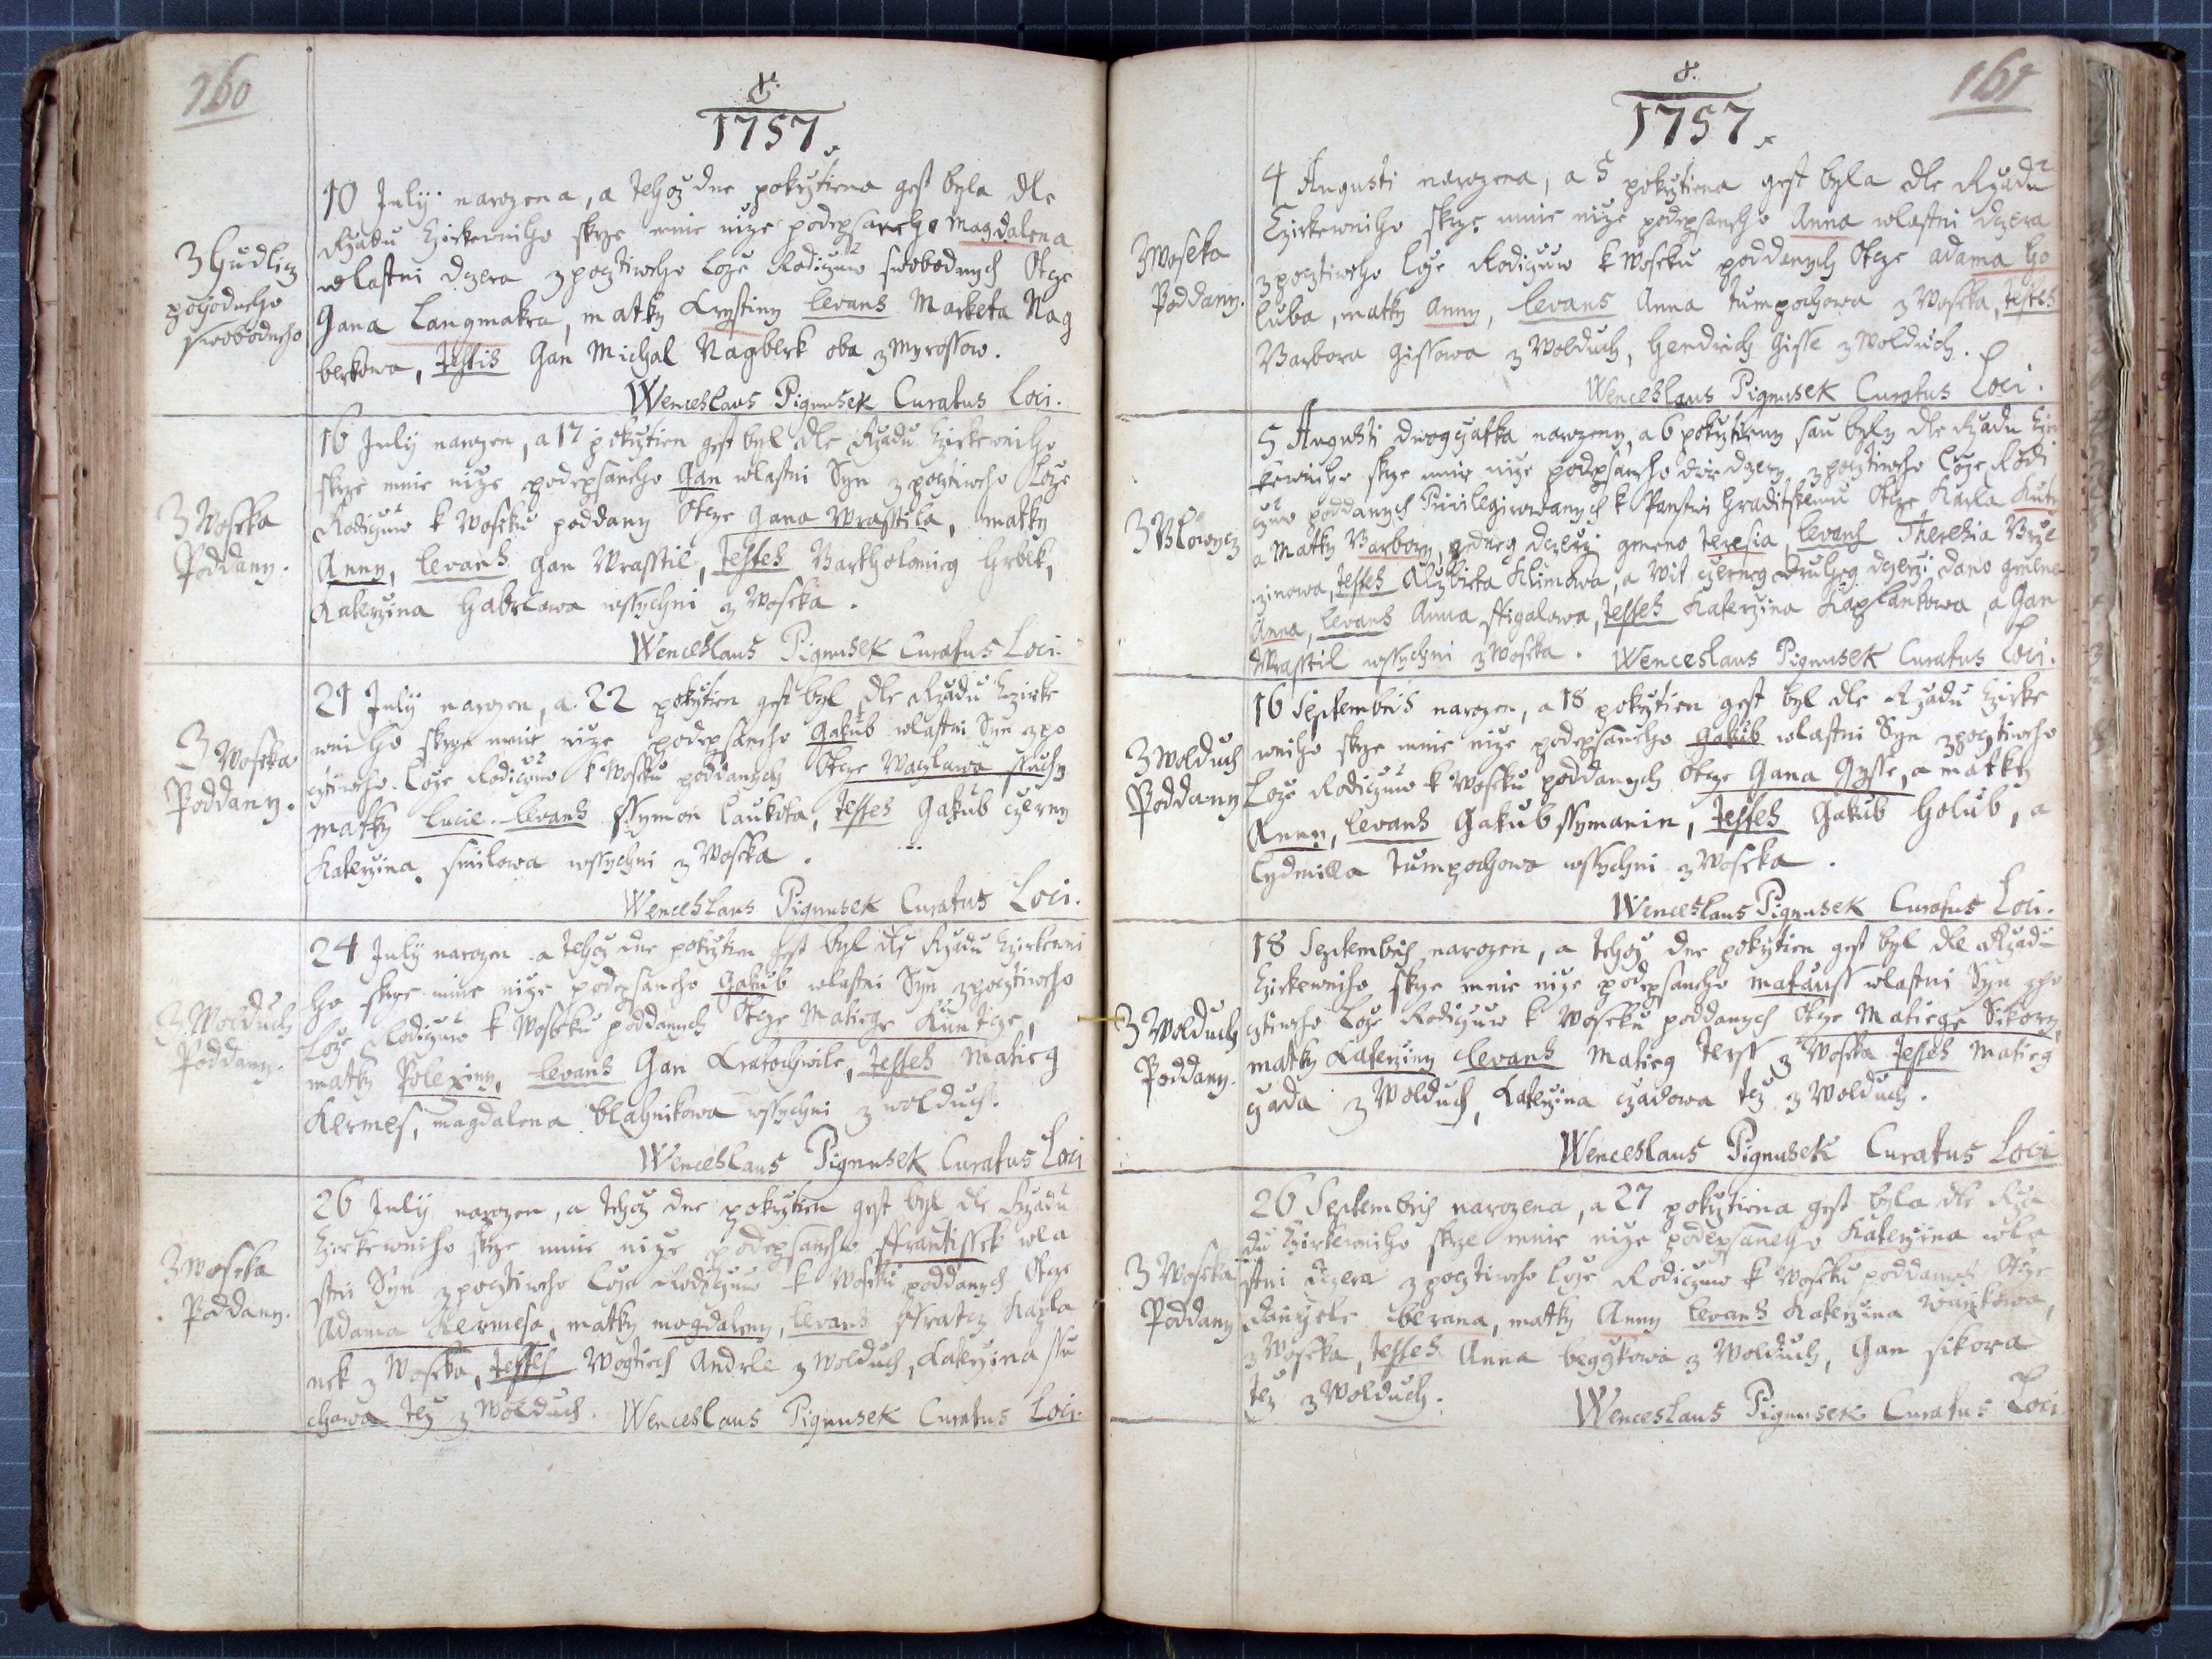 160
1757.
10 July narozena, a tehoz dne pokrztiena gest byla dle
Rzadu Czirkewniho skrze mnie nize podepsaneho Magdalena
3 Hudlicz
pohodneho
swobodneho
wlastni dczera z pocztiweho Loze Rodiczuw swobodnych Otcze
Gana Langmakra, matky Krystiny Levans Marketa Nag
berkowa, Testis Gan Michal Nagberk oba z Myrossow.
Wenceslaus Pignusek Curatus Loci.
16 July narozen, a 17 pokrztien gest byl dle Rzadu Czirkewniho
skrze mnie nize podepsaneho Gan wlastni Syn z pocztiweho Loze
Z Woseka
Poddany.
Rodiczuw k Woseku poddany Otcze Gana Wrasstila, matky
Anny, Levans Gan Wrasstil, Testes Bartholomieg Hrbek,
Katerzina Gabrlowa wssychni z Woseka.
Wenceslaus Pignusek Curatus Loci.
21 July narozen, a 22 pokrztien gest byl dle Rzadu Czirke
wniho skrze mnie nize podepsaneho Gakub wlastni Syn z po
Z Woseka
Poddany.
cztiweho Loze Rodiczuw k Woseku poddanych Otcze Waczlawa
matky Lucie Levans Ssymon Laukota, Testes Gakub Czerny
Katerzina smilowa wssychni z Woseka.
Wenceslaus Pignusek Curatus Loci.
24 July narozen a tehoz dne pokrztien gest byl dle Rzadu Czirkewni
ho skrze mnie nize podepsaneho Gakub wlastni Syn z pocztiweho
Z Wolduch
Poddany.
Loze Rodiczuw k Woseku poddanych Otcze Matiege Kuntcze,
matky Polexiny, Levans Gan Kratochwile, Testes Matieg
Kermes, Magdalena blahnikowa wssychni z Wolduch.
Wenceslaus Pignusek Curatus Loci
26 July narozen, a tehoz dne pokrztien gest byl dle Rzadu
Czirkewniho skrze mnie nize podepsaneho Ffrantissek wla
Z Woseka
Poddany.
stni Syn z pocztiweho Loze Rodiczuw k Woseku poddanych Otcze
Adama Kermesa, matky Magdaleny, Levans Karla
nek z Woseka, Testes Wogtiech Andrle z Wolduch, Katerzina ssu
chowa tez z Wolduch. Wenceslaus Pignusek Curatus Loci.
161
1757.
4 Augusti narozena, a 5 pokrztiena gest byla dle Rzadu
Czirkewniho skrze mnie nize podepsaneho Anna wlastni dczera
Z Woseka
Poddany.
z pocztiweho Loze Rodiczuw k Woseku poddanych Otcze Adama Ho
luba, matky Anny, Levans Anna Tumpochowa z Woseka, Testes
Barbora Gissowa z Wolduch, Hendrich Gisse z Wolduch.
Wenceslaus Pignusek Curatus Loci.
5 Augusti dwogczatka narozeny, a 6 pokrztieny sau byly dle Rzadu Czir
kewniho skrze mnie nize podepsaneho dwie dczery z pocztiweho Loze Rodi
czuw poddanych Priwilegirowanych k Panstwi Hraditskemu Otcze Karla
a Matky Barbory, gedneg dczerzi gmeno Teresia, Levans Theresia
zinowa, Testes Alzbieta Klimowa, a Wit Czerneg druheg dczerzi dano gmeno
Anna, Levans Anna Ffigalowa, Testes Katerzina Kaplankowa, a Gan
Wrasstil wssychni z Woseka. Wenceslaus Pignusek Curatus Loci.
16 Septembris narozen, a 18 pokrztien gest byl dle Rzadu Czirke
wniho skrze mnie nize podepsaneho Gakub wlastni Syn z pocztiweho
Z Wolduch
Poddany
Loze Rodiczuw k Woseku poddanych Otcze Gana Gysse, a matky
Anny, Levans Gakub Ssymanin, Testes Gakub Holub, a
Lydmilla Tumpochowa wssychni z Woseka.
Wenceslaus Pignusek Curatus Loci.
18 Septembris narozen, a tehoz dne pokrztien gest byl dle Rzadu
Czirkewniho skrze mnie nize podepsaneho Matauss wlastni Syn z po
Z Wolduch
Poddany.
cztiweho Loze Rodiczuw k Woseku poddanych Otcze Matiege Sikory,
matky Katerziny Levans Matieg Terss z Woseka Testes Matieg
czada z Wolduch, Katerzina czadowa tez z Wolduch.
Wenceslaus Pignusek Curatus Loci
26 Septembris narozena, a 27 pokrztiena gest byla dle Rza
du Czirkewniho skrze mnie nize podepsaneho Katerzina wla
Z Woseka
Poddany
stni dczera z pocztiweho Loze Rodiczuw k Woseku poddanych Otcze
Danyele berana, matky Anny Levans Katerzina Wankowa,
z Woseka, Testes Anna begczkowa z Wolduch, Gan sikora
tez z Wolduch. Wenceslaus Pignusek Curatus Loci